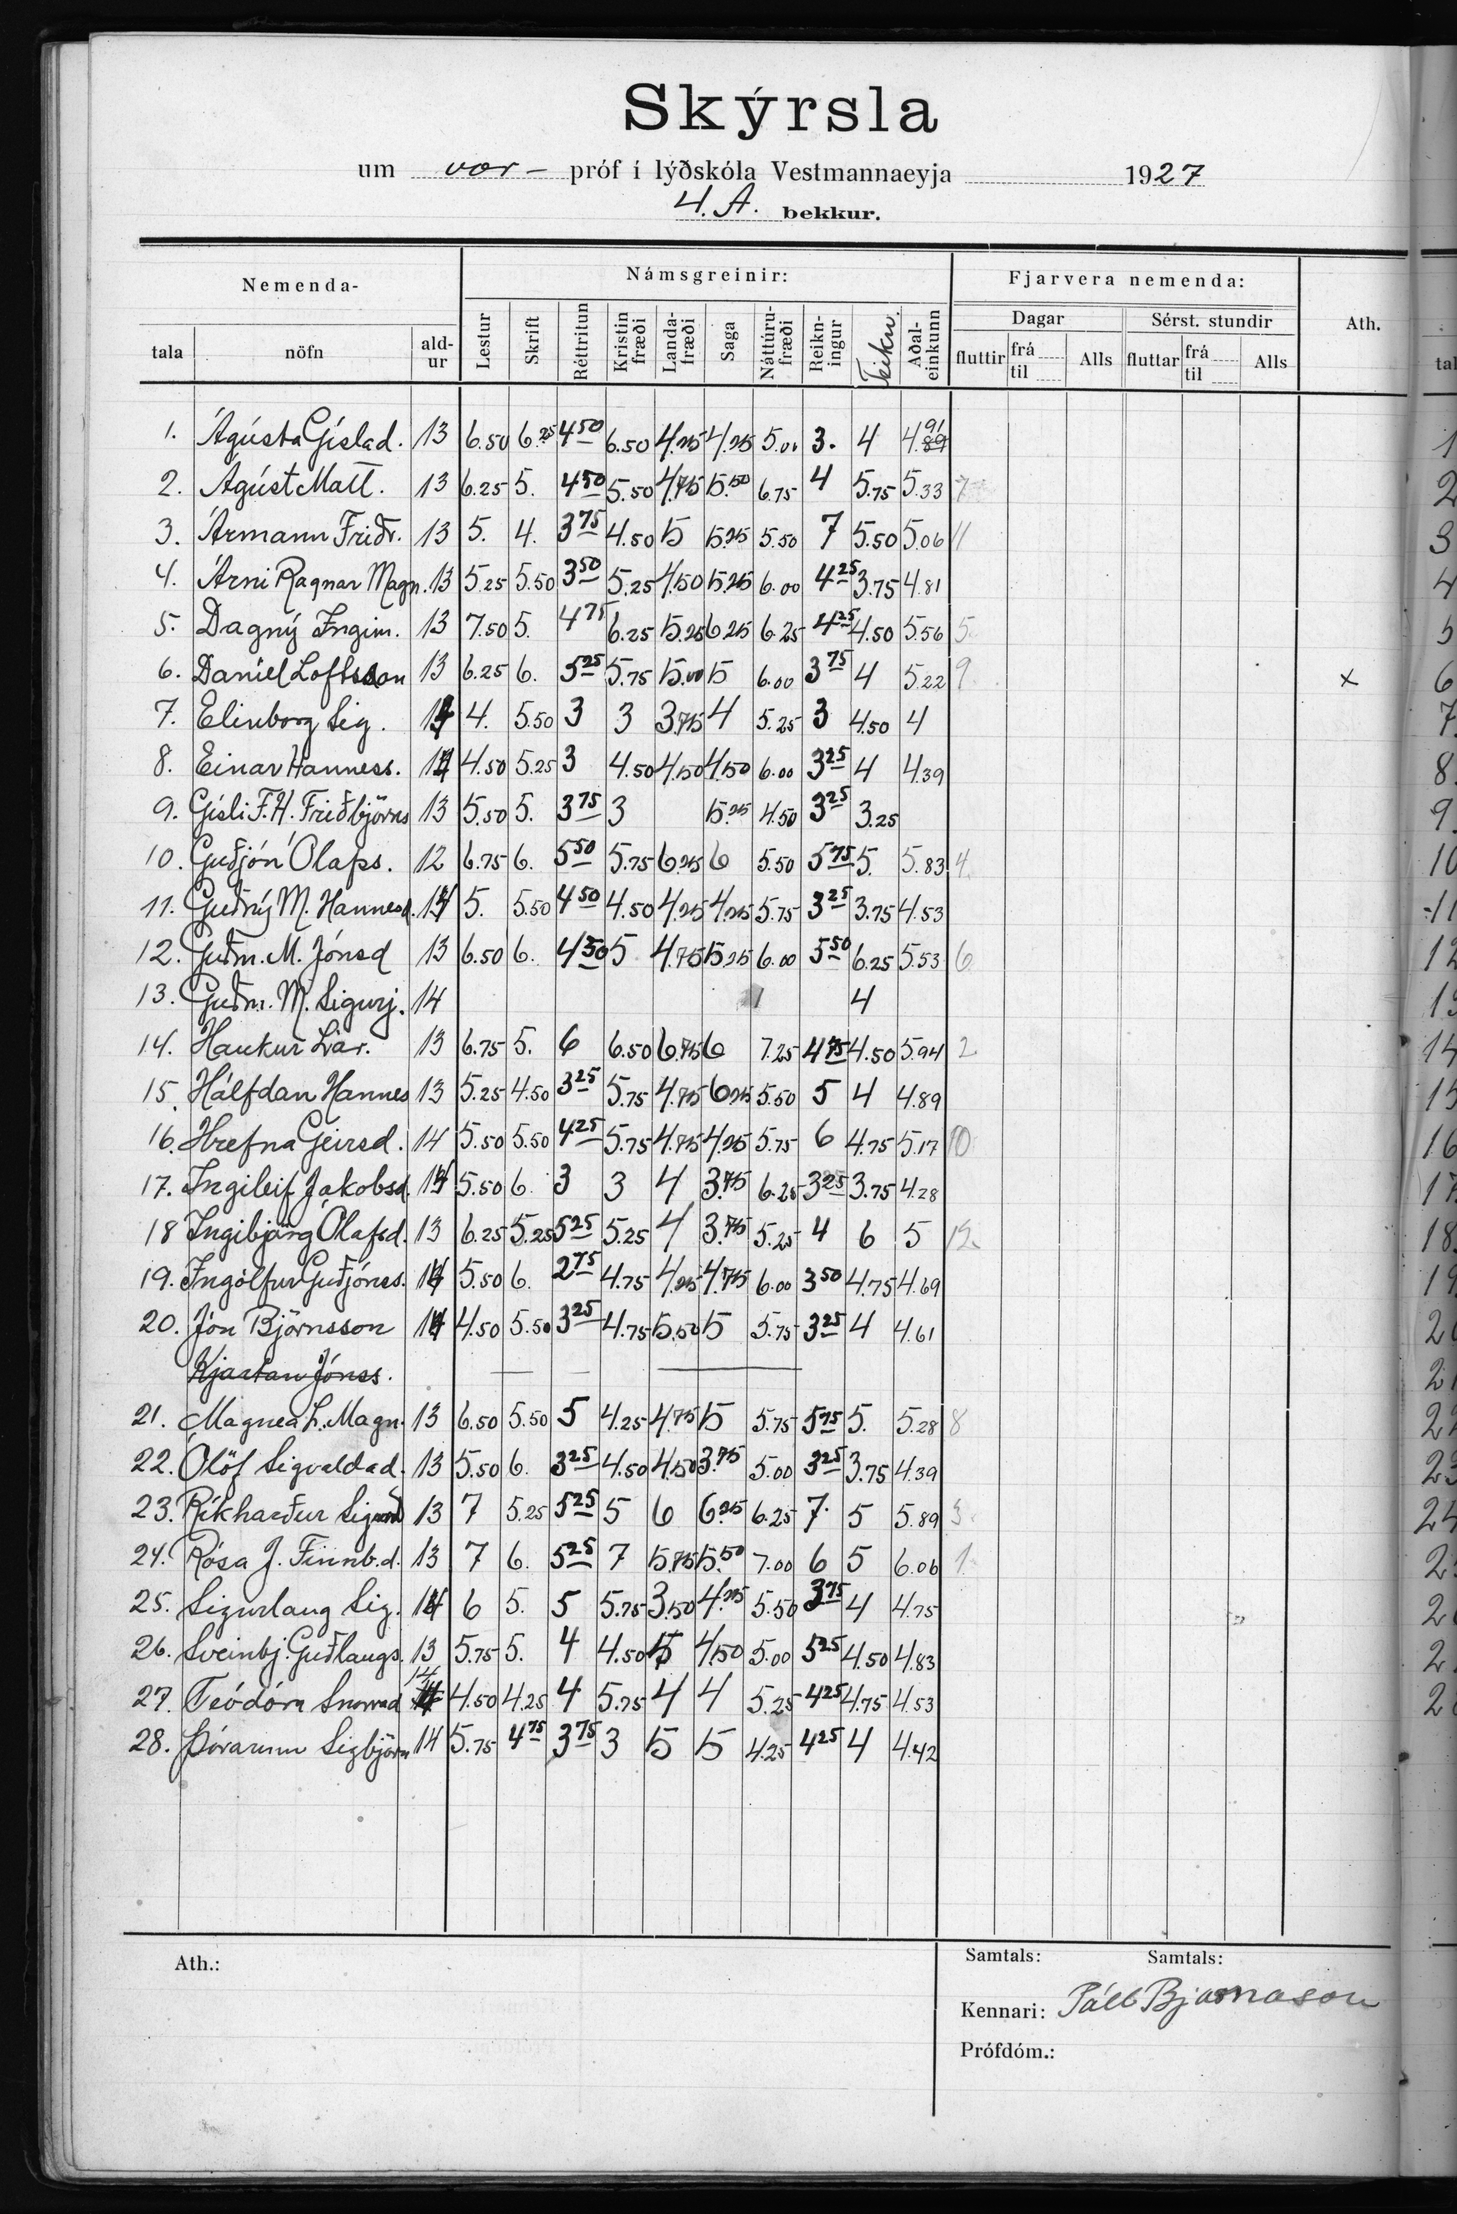 Skýrsla
um vor- próf í lýðskóla Vestmannaeyja 1927
4. A. bekkur.
Nemenda- Námsgreinir: Fjarvera nemenda: Ath.
tala nöfn ald-ur Lestur Skrift Réttritun Kristin fræði Landa-fræði Saga Náttúru-fræði Reikn-ingur Teikn. Aðal-einkunn Dagar Sérst. stundir
fluttir frá til Alls fluttar frá til Alls
1. Ágústa Gíslad. 13 6.50 6.25 4 50 6.50 4.25 4.25 5.00 3. 4 4.89 91
2. Ágúst Matt. 13 6.25 5. 4 50 5.50 4.75 5.50 6.75 4 5.75 5.33 7
3. Ármann Friðr. 13 5. 4. 3 75 4.50 5 5.25 5.50 7 5.50 5.06 11
4. Árni Ragnar Magn. 13 5.25 5.50 3 50 5.25 4.50 5.25 6.00 4 25 3.75 4.81
5. Dagný Ingim. 13 7.50 5. 4 75 6.25 5.25 6.25 6.25 4 25 4.50 5.56 5
6. Daníel Loftsson 13 6.25 6. 5 25 5.75 5.00 5 6.00 3 75 4 5.22 9 x
7. Elinborg Sig. 14 4. 5.50 3 3 3.75 4 5.25 3 4.50 4
8. Einar Hanness. 4.50 5.25 3 4.50 4.50 4.50 6.00 3 25 4 4.39
9. Gísli F.H. Friðbjörns 13 5.50 5. 3 75 3 5.25 4.50 3 25 3.25
10. Guðjón Ólafs. 12 6.75 6. 5 50 5.75 6.25 6 5.50 5 75 5. 5.83 4
11. Guðný M. Hannesd. 14 5. 5.50 4 50 4.50 4.25 4.25 5.75 3 25 3.75 4.53
12. Guðm. M. Jónsd 13 6.50 6. 4 50 5 4.75 5.25 6.00 5 50 6.25 5.53 6
13. Guðm. M. Sigurj. 14 4
14. Haukur Lár. 13 6.75 5. 6 6.50 6.75 6 7.25 4 75 4.50 5.94 2
15. Hálfdan Hannes 13 5.25 4.50 3 25 5.75 4.75 6.25 5.50 5 4 4.89
16. Hrefna Geirsd. 14 5.50 5.50 4 25 5.75 4.75 4.25 5.75 6 4.75 5.17 10
17. Ingileif Jakobsd. 14 5.50 6. 3 3 4 3.75 6.25 3 25 3.75 4.28
18 Ingibjörg Ólafsd. 13 6.25 5.25 5 25 5.25 4 3.75 5.25 4 6 5 12
19. Ingólfur Guðjónss. 14 5.50 6. 2 75 4.75 4.25 4.75 6.00 3 50 4.75 4.69
20. Jón Björnsson 14 4.50 5.50 3 25 4.75 5.50 5 5.75 3 25 4 4.61
Kjartan Jónss.
21. Magnea L. Magn. 13 6.50 5.50 5 4.25 4.75 5 5.75 5 75 5. 5.28 8
22. Ólöf Sigvaldad. 13 5.50 6. 3 25 4.50 4.50 3.75 5.00 3 25 3.75 4.39
23. Ríkharður 13 7 5.25 5 25 5 6 6.25 6.25 7. 5 5.89 3
24. Rósa J. Finnb.d. 13 7 6. 5 25 7 5.75 5.50 7.00 6 5 6.06 1
25. Sigurlaug Sig. 14 6 5. 5 5.75 3.50 4.25 5.50 3 75 4 4.75
26. Sveinbj. Guðlaugs. 13 5.75 5. 4 4.50 5 4.50 5.00 5 25 4.50 4.83
27. Teódóra Snorrad 14 4.50 4.25 4 5.75 4 4 5.25 4 25 4.75 4.53
28. Þórarinn Sigbjörn 14 5.75 4 75 3 75 3 5 5 4.25 4 25 4 4.42
Ath.: Samtals: Samtals:
Kennari: Páll Bjarnason
Prófdóm.: